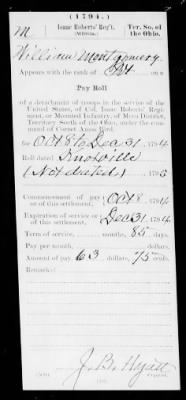 (1794.)
M Isaac Roberts' Reg't. Ter. So. of
(Militia.) the Ohio.
William Montgomery
Appears with the rank of Pvt. on a
Pay Roll
of a detachment of troops in the service of the
United States, of Col. Isaac Roberts' Regi-
ment, or Mounted Infantry, of Mero District,
Territory South of the Ohio, under the com-
mand of Cornet Amos Bird,
for Oct 8 to Dec 31, 1794
Roll dated Knoxville
(Not dated), 179
Commencement of pay or of this settlement, Oct 8, 1794
Expiration of service or of this settlement, Dec 31, 1794
Term of service, 85 days.
Pay per month, dollars.
Amount of pay, 63 dollars, 75 cents.
Remarks:
J. B. Hyatt
Copyist.